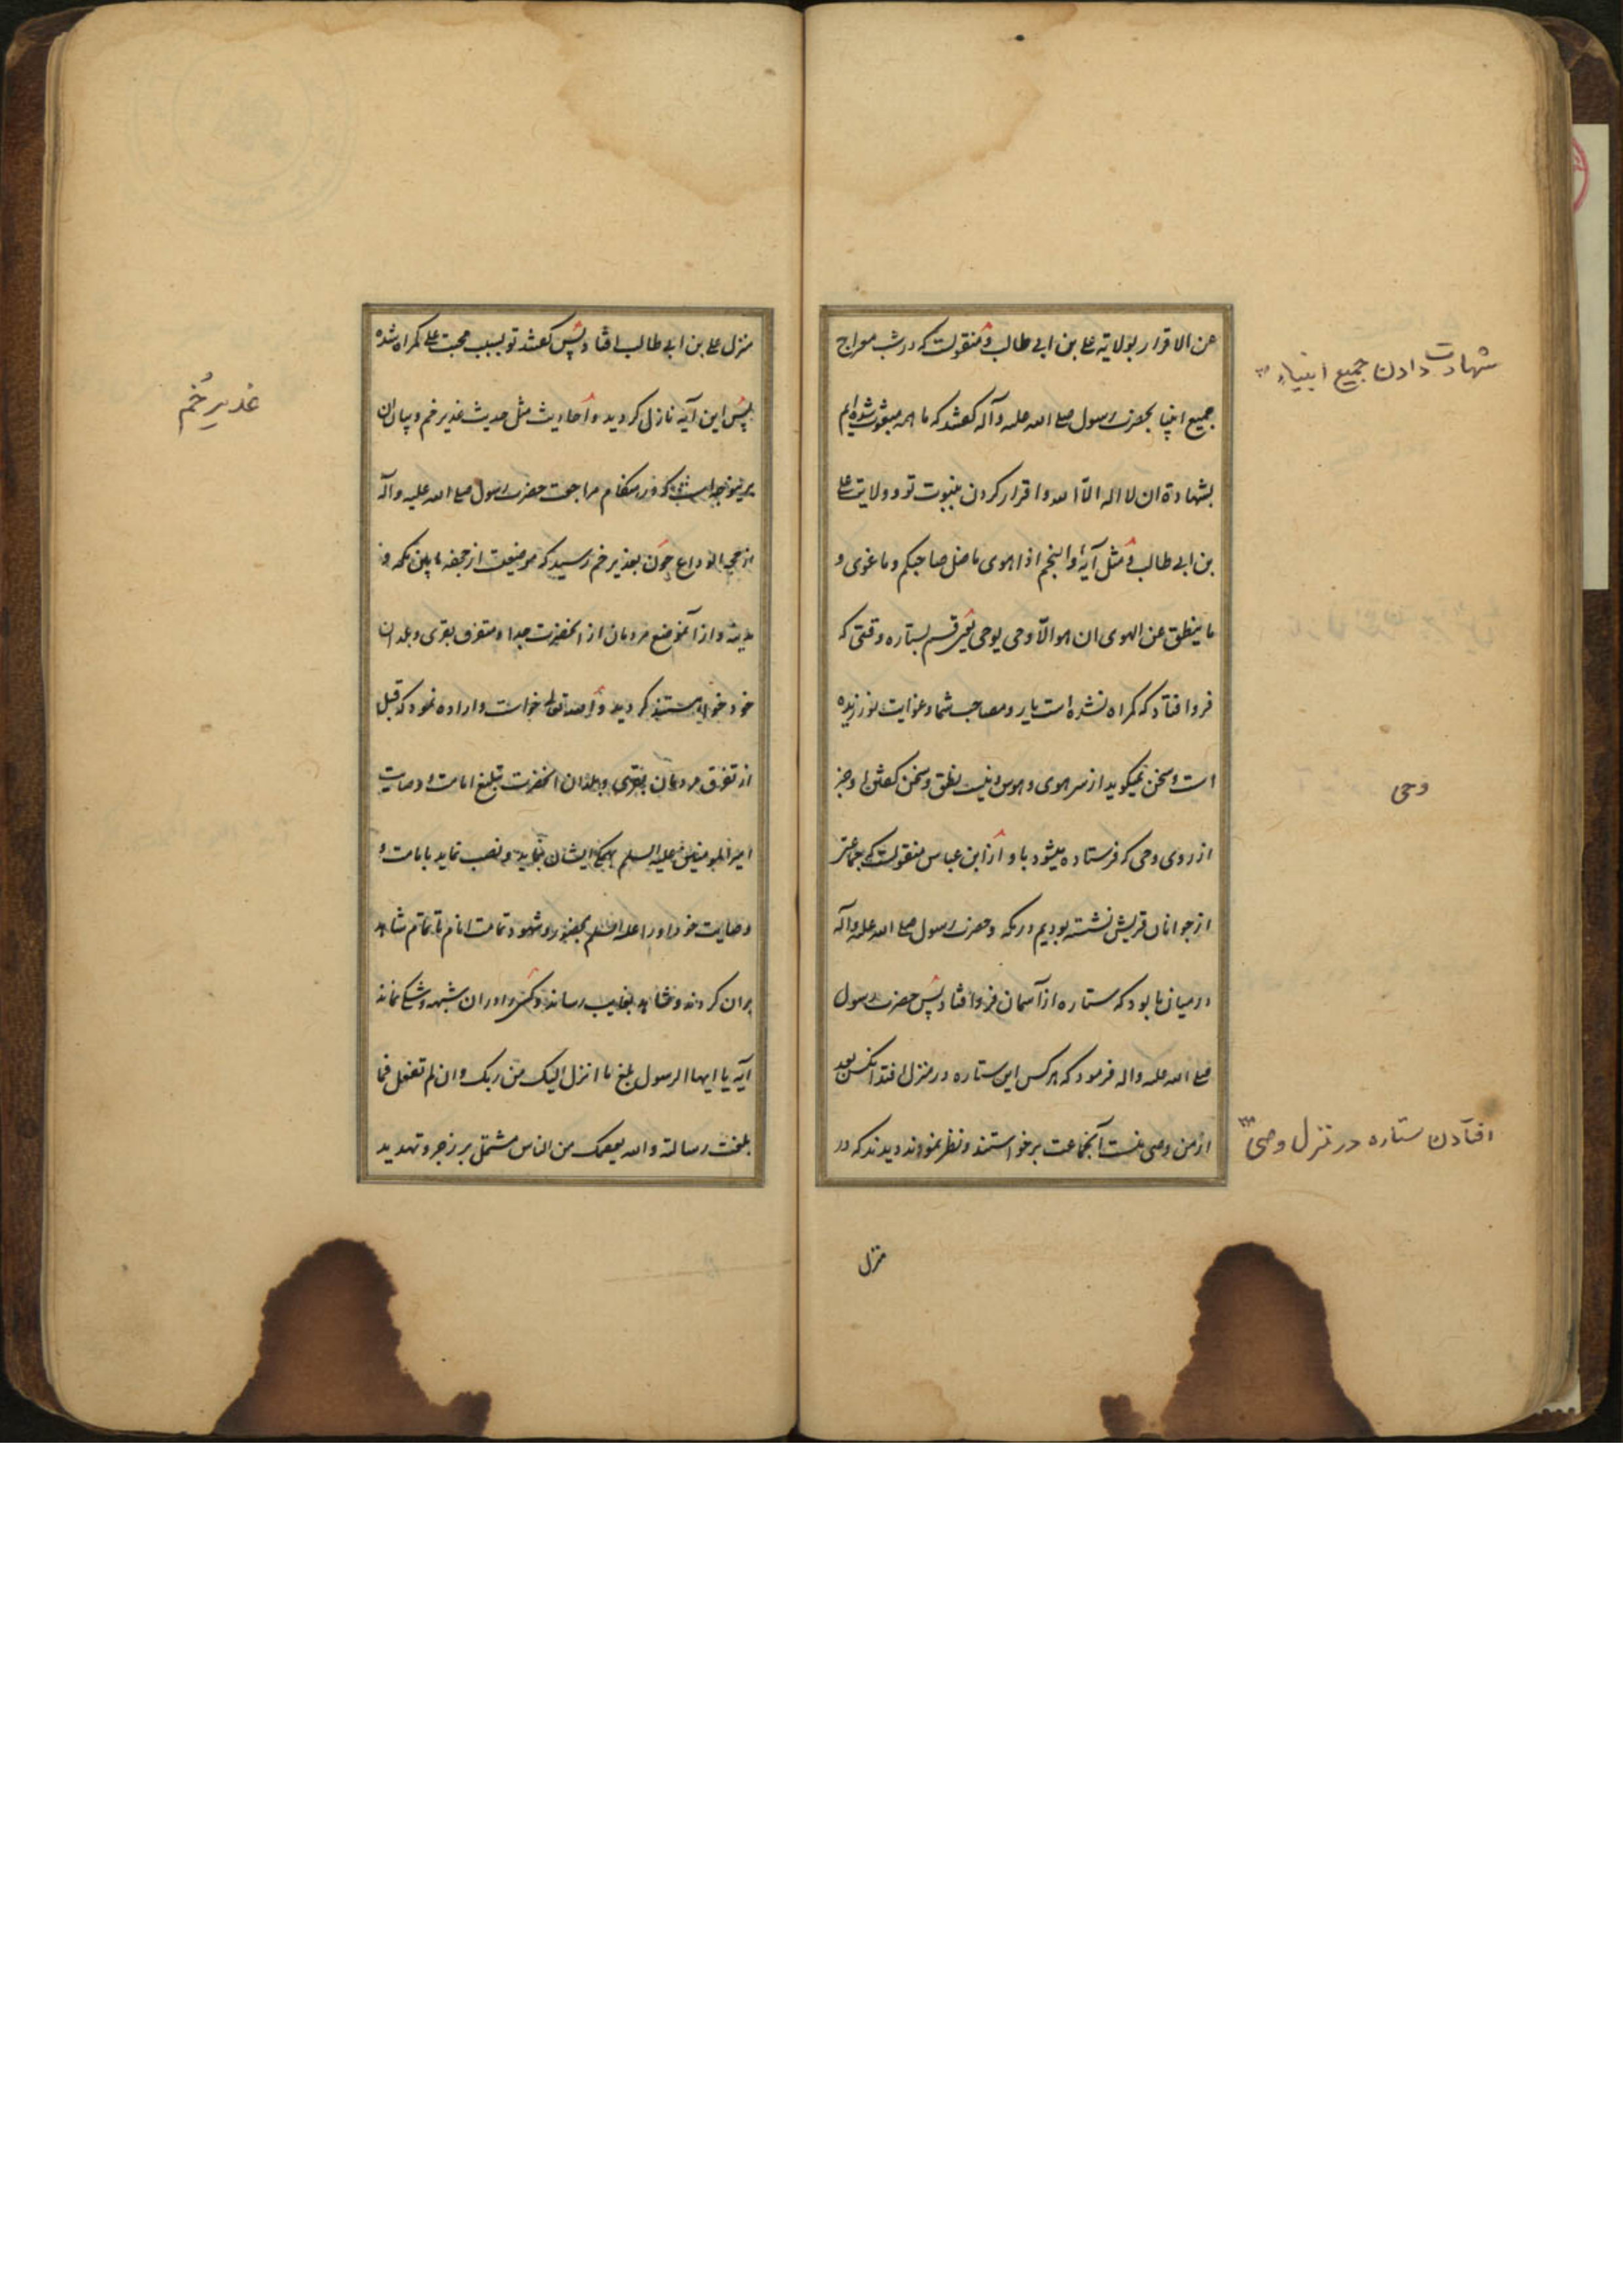 عن الاقرار بولایته علی بن ابی طالب و منقولست که در شب معراج
شهادت دادن جمیع انبیاء
جمیع انبیا بحضرت رسول صلی الله علیه و آله گفتند که ما همه مبعوث شده ایم
بشهادة ان لا اله الّا الله و اقرار کردن بنبوت تو و ولایت علی
بن ابی طالب و مثل آیهٔ والنجم اذا هوی ما ضل صاحبکم و ما غوی و
ما ینطق عن الهوی ان هو الّا وحی یوحی یعنی قسم بستاره وقتی که
فرو افتاد که گمراه نشده است یار و مصاحب شما و غوایت نورزیده
است و سخن نمیگوید از سر هوی و هوس و نیست نطق و سخن گفتن او جز
وحی
از روی وحی که فرستاده میشود باو و از ابن عباس منقولست که جماعتی
از جوانان قریش نشسته بودیم در مکه و حضرت رسول صلی الله علیه و آله
در میان ما بود که ستاره از آسمان فرو افتاد پس حضرت رسول
صلی الله علیه و اله فرمود که هر کس این ستاره در منزل افتد آنکس بعد
از من وصی منست آنجماعت برخواستند و نظر نمودند دیدند که در
افتادن ستاره در منزل وصی
منزل
منزل علی بن ابی طالب افتاد پس گفتند تو بسبب محبت علی گمراه شده
غدیر خُم
پس این آیه نازل گردید و احادیث مثل حدیث غدیر خم و بیان آن
برینوجه است که در هنگام مراجعت حضرت رسول صلی الله علیه و آله
از حجة الوداع چون بغدیر خم رسید که موضعیست از جحفه مابین مکه و
مدینه و از آنموضع مردمان از آنحضرت جدا و متفرق بقری و بلدان
خود میشدند گردید و الله تعالی خواست و اراده نمود که قبل
از تفرق مردمان بقری و بلدان آنحضرت تبلیغ امامت و وصایت
امیر المؤمنین علیه السلم بهمگی ایشان نماید و نصب نماید بامامت و
وصایت خود او را علیه السلم بحضور و شهود تمامت انام تا تمام شاهد
بران گردند و شاهد بغایب رساند و کسی را دران شبهه و شکی نماند
آیه یا ایها الرسول بلغ ما انزل الیک من ربک و ان لم تفعل فما
بلغت رسالته و الله یعصمک من الناس مشتمل بر زجر و تهدید